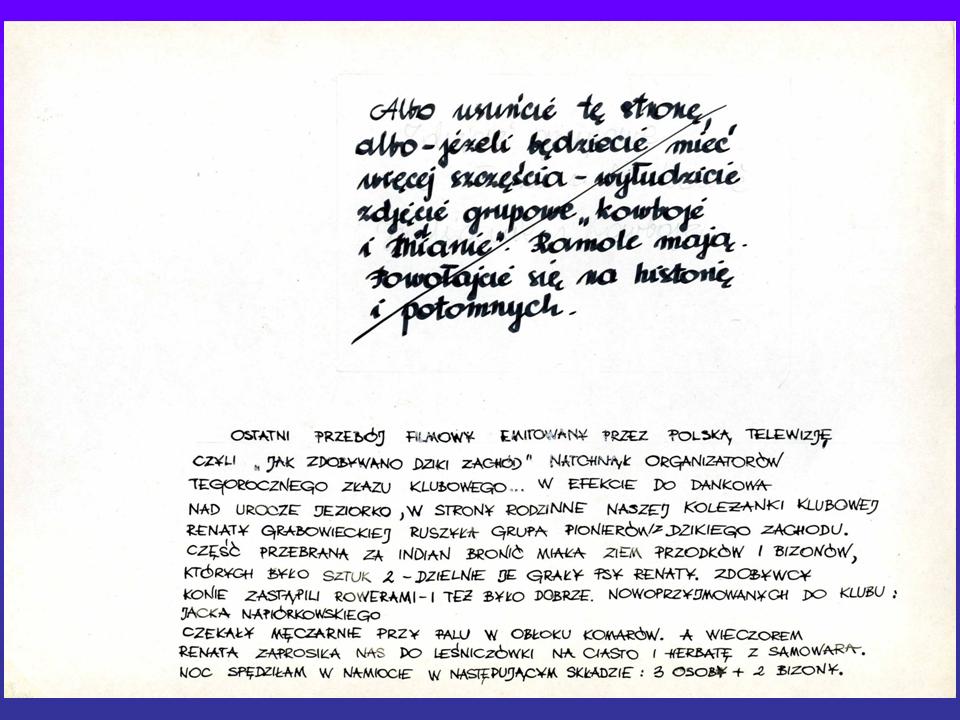 Albo usuńcie tę stronę,
albo - jeżeli będziecie mieć
więcej szczęścia - wyłudzicie
zdjęcie grupowe „kowboje
i Indianie". Ramole mają.
Powołajcie się na historię
i potomnych.
OSTATNI PRZEBÓJ FILMOWY EMITOWANY PRZEZ POLSKĄ TELEWIZJĘ
CZYLI „JAK ZDOBYWANO DZIKI ZACHÓD" NATCHNĄŁ ORGANIZATORÓW
TEGOROCZNEGO ZŁAZU KLUBOWEGO... W EFEKCIE DO DANKOWA
NAD UROCZE JEZIORKO, W STRONY RODZINNE NASZEJ KOLEŻANKI KLUBOWEJ
RENATY GRABOWIECKIEJ RUSZYŁA GRUPA PIONIERÓW Z DZIKIEGO ZACHODU.
CZĘŚĆ PRZEBRANA ZA INDIAN BRONIĆ MIAŁA ZIEM PRZODKÓW I BIZONÓW,
KTÓRYCH BYŁO SZTUK 2 - DZIELNIE JE GRAŁY PSY RENATY. ZDOBYWCY
KONIE ZASTĄPILI ROWERAMI - I TEŻ BYŁO DOBRZE. NOWOPRZYJMOWANYCH DO KLUBU :
JACKA NAPIÓRKOWSKIEGO
CZEKAŁY MĘCZARNIE PRZY PALU W OBŁOKU KOMARÓW. A WIECZOREM
RENATA ZAPROSIŁA NAS DO LEŚNICZÓWKI NA CIASTO I HERBATĘ Z SAMOWARA.
NOC SPĘDZIŁAM W NAMIOCIE W NASTĘPUJĄCYM SKŁADZIE : 3 OSOBY + 2 BIZONY.